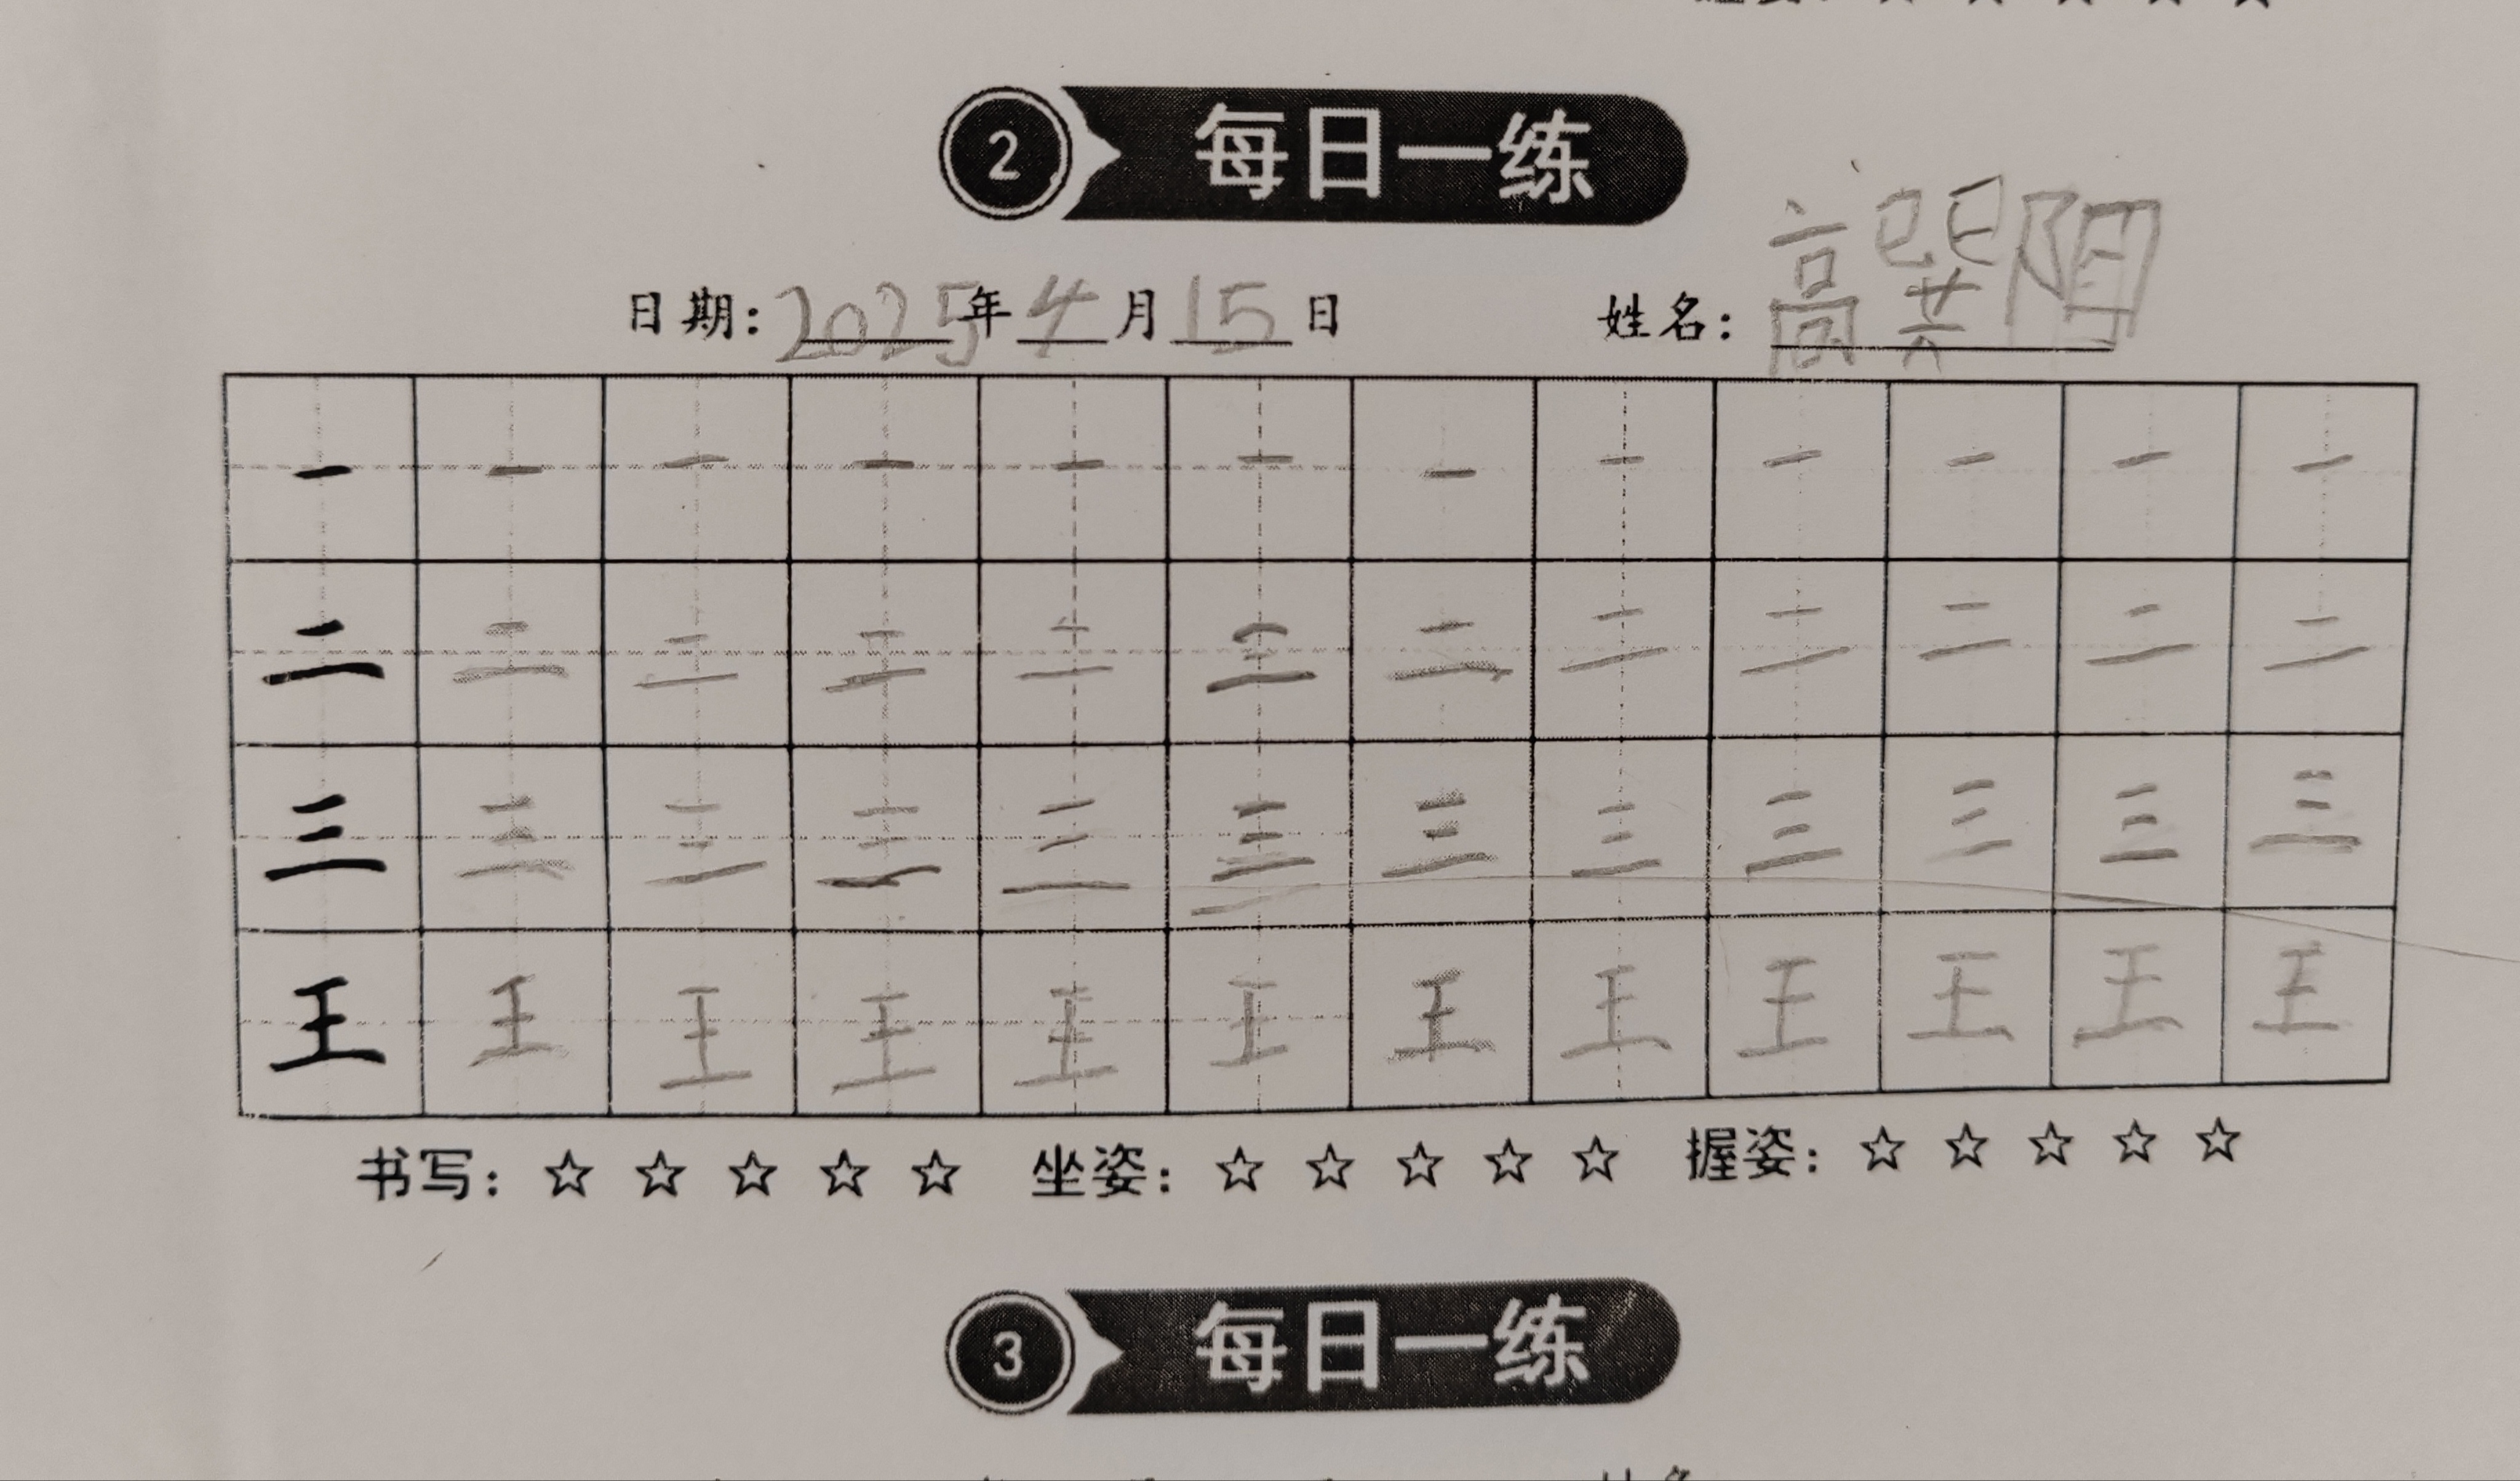 2 每日一练
日期: 2025年4月15日 姓名: 高巽阳
一 一 一 一 一 一 一 一 一 一 一 一
二 二 二 二 二 二 二 二 二 二 二 二
三 三 三 三 三 三 三 三 三 三 三 三
王 王 王 王 王 王 王 王 王 王 王 王
书写: ☆ ☆ ☆ ☆ ☆ 坐姿: ☆ ☆ ☆ ☆ ☆ 握姿: ☆ ☆ ☆ ☆ ☆
3 每日一练